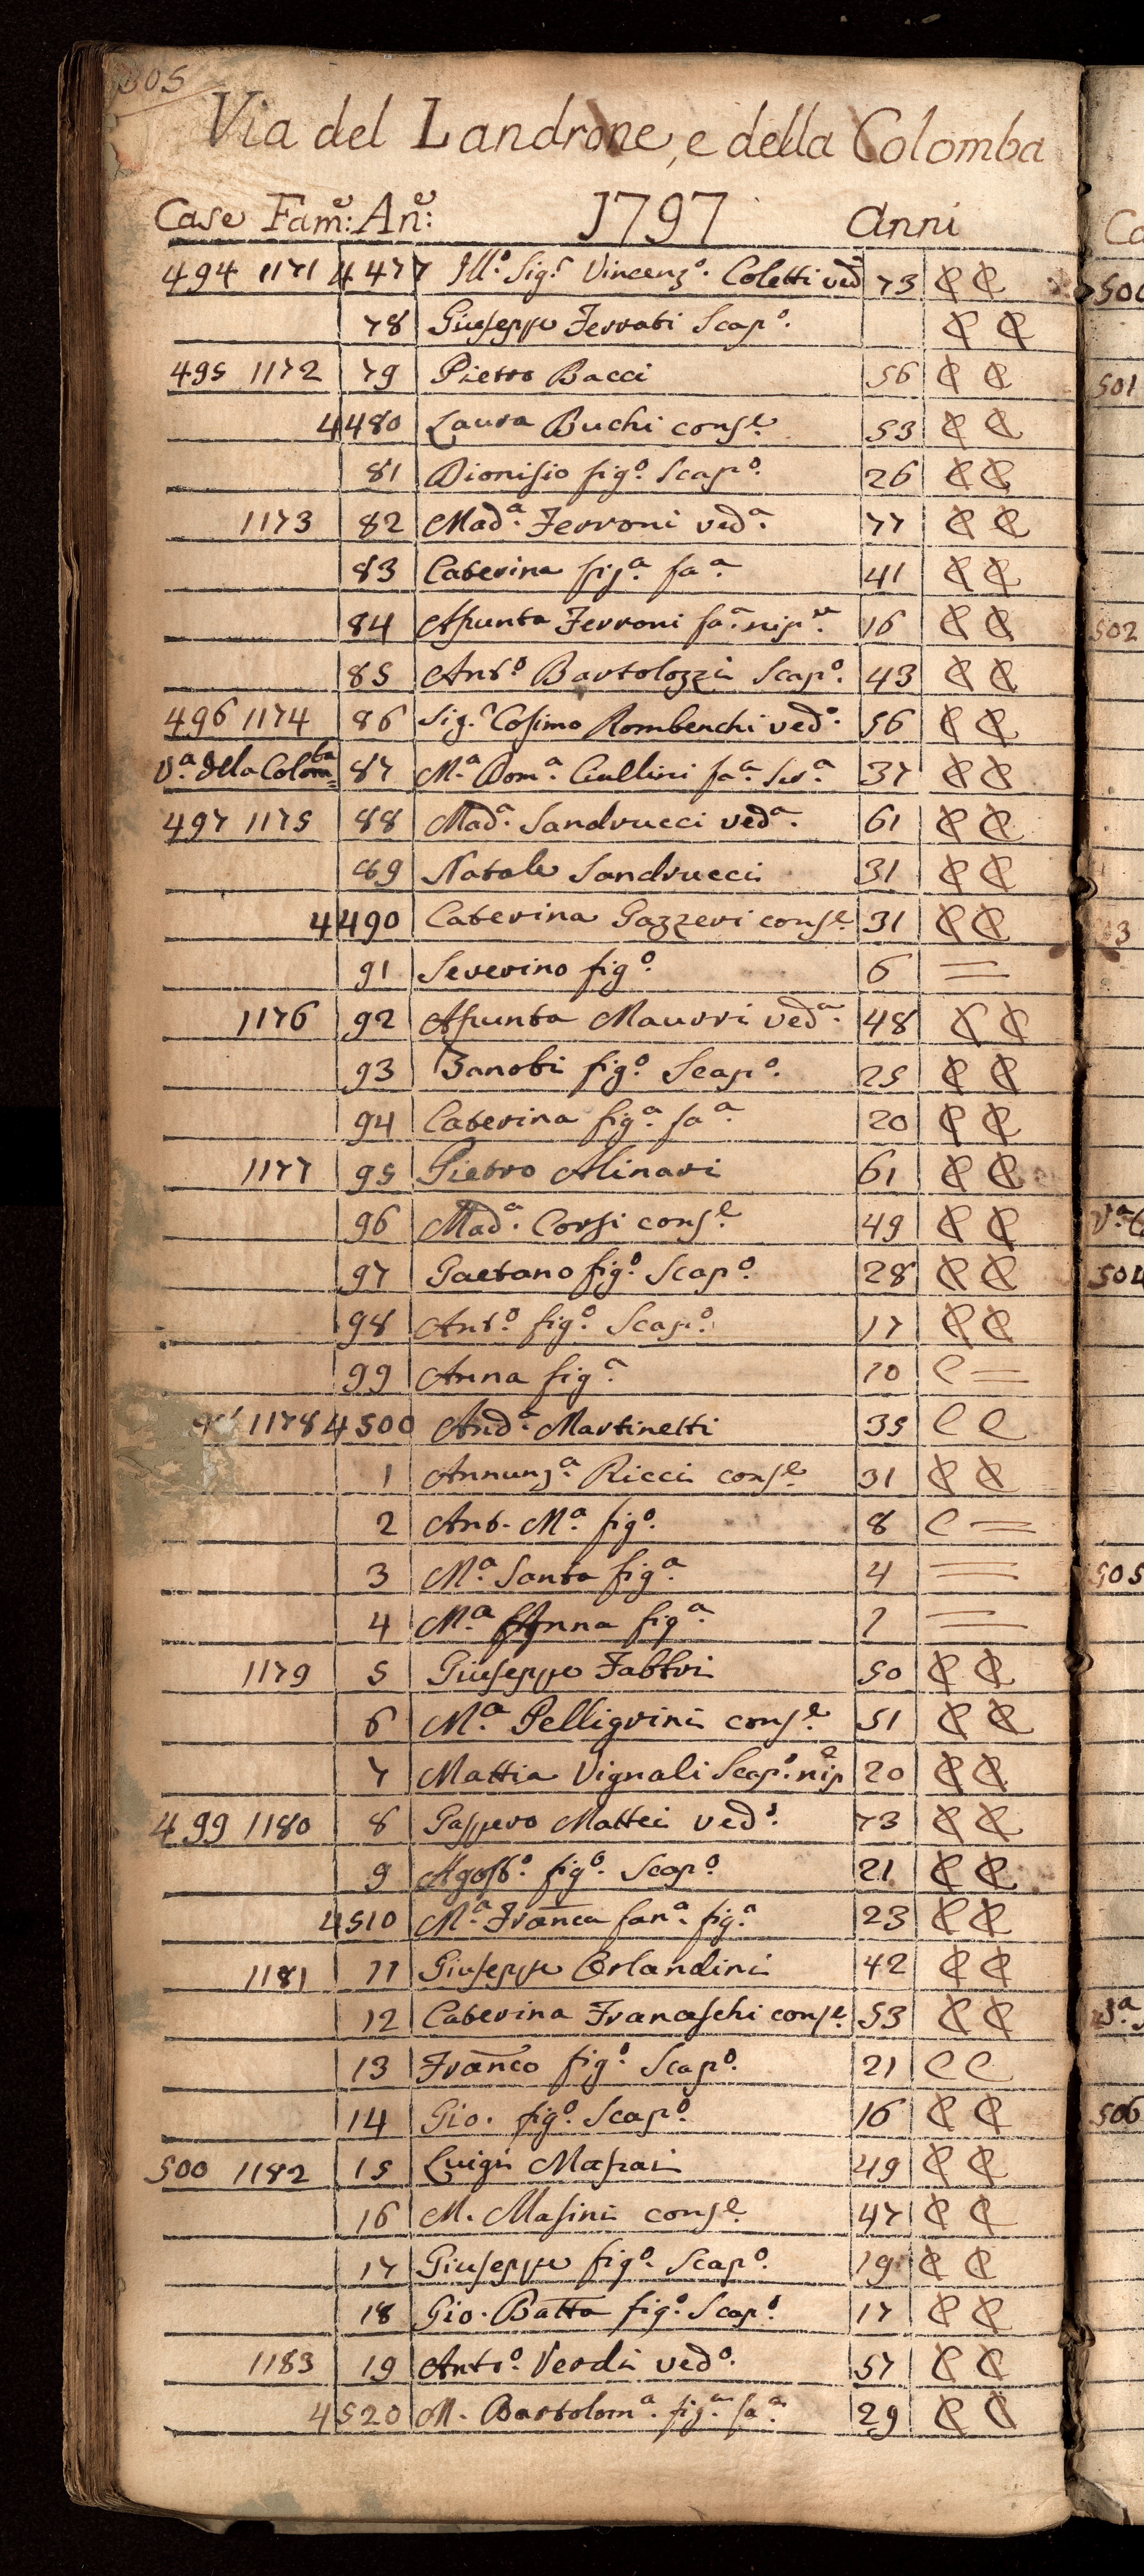 305
Via del Landrone, e della Colomba
Case Fam.e: An.e: 1797 Anni
494 1171 4477 Ill.o Sig.r Vincenz.o Coletti ved.o 73 C C
78 Giuseppe Ferrati Scap.o C C
495 1172 79 Pietro Bacci 56 C C
4480 Laura Buchi cons.e 53 C C
81 Dionisio fig.o Scap.o 26 C C
1173 82 Mad.a Ferroni ved.a 77 C C
83 Caterina fig.a fa.a 41 C C
84 Asunta Ferroni fa.a nip.e 16 C C
85 Ant.o Bartolozzi Scap.o 43 C C
496 1174 86 Sig.r Cosimo Rombenchi ved.o 56 C C
V.a della Colom.ba 87 M.a Dom.a Cullini fa.a Ser.a 37 C C
497 1175 88 Mad.a Sandrucci ved.a 61 C C
89 Natale Sandrucci 31 C C
4490 Caterina Gazzeri cons.e 31 C C
91 Severino fig.o 6 =
1176 92 Asunta Maurri ved.a 48 C C
93 Zanobi fig.o Scap.o 25 C C
94 Caterina fig.a fa.a 20 C C
1177 95 Pietro Alinari 61 C C
96 Mad.a Corsi cons.e 49 C C
97 Gaetano fig.o Scap.o 28 C C
98 Ant.o fig.o Scap.o 17 C C
99 Anna fig.a 10 C =
1178 4500 And.a Martinelli 35 C C
1 Annunz.a Ricci cons.e 31 C C
2 Ant. M.a fig.o 8 C =
3 M.a Santa fig.a 4 =
4 M.a Anna fig.a 1 =
1179 5 Giuseppe Fabbri 50 C C
6 M.a Pelligrini cons.e 51 C C
7 Mattia Vignali Scap.o nip.e 20 C C
499 1180 8 Gaspero Mattei ved.o 73 C C
9 Agost.o fig.o Scap.o 21 C C
4510 M.a Franca fan.a fig.a 23 C C
1181 11 Giuseppe Orlandini 42 C C
12 Caterina Franceschi cons.e 53 C C
13 Franco fig.o Scap.o 21 C C
14 Gio. fig.o Scap.o 16 C C
500 1182 15 Luigi Masai 49 C C
16 M. Masini cons.e 47 C C
17 Giuseppe fig.o Scap.o 19 C C
18 Gio. Batta fig.o Scap.o 17 C C
1183 19 Ant.o Verdi ved.o 57 C C
4520 M. Bartolom.a fig.a fa.a 29 C C
501
502
504
505
506